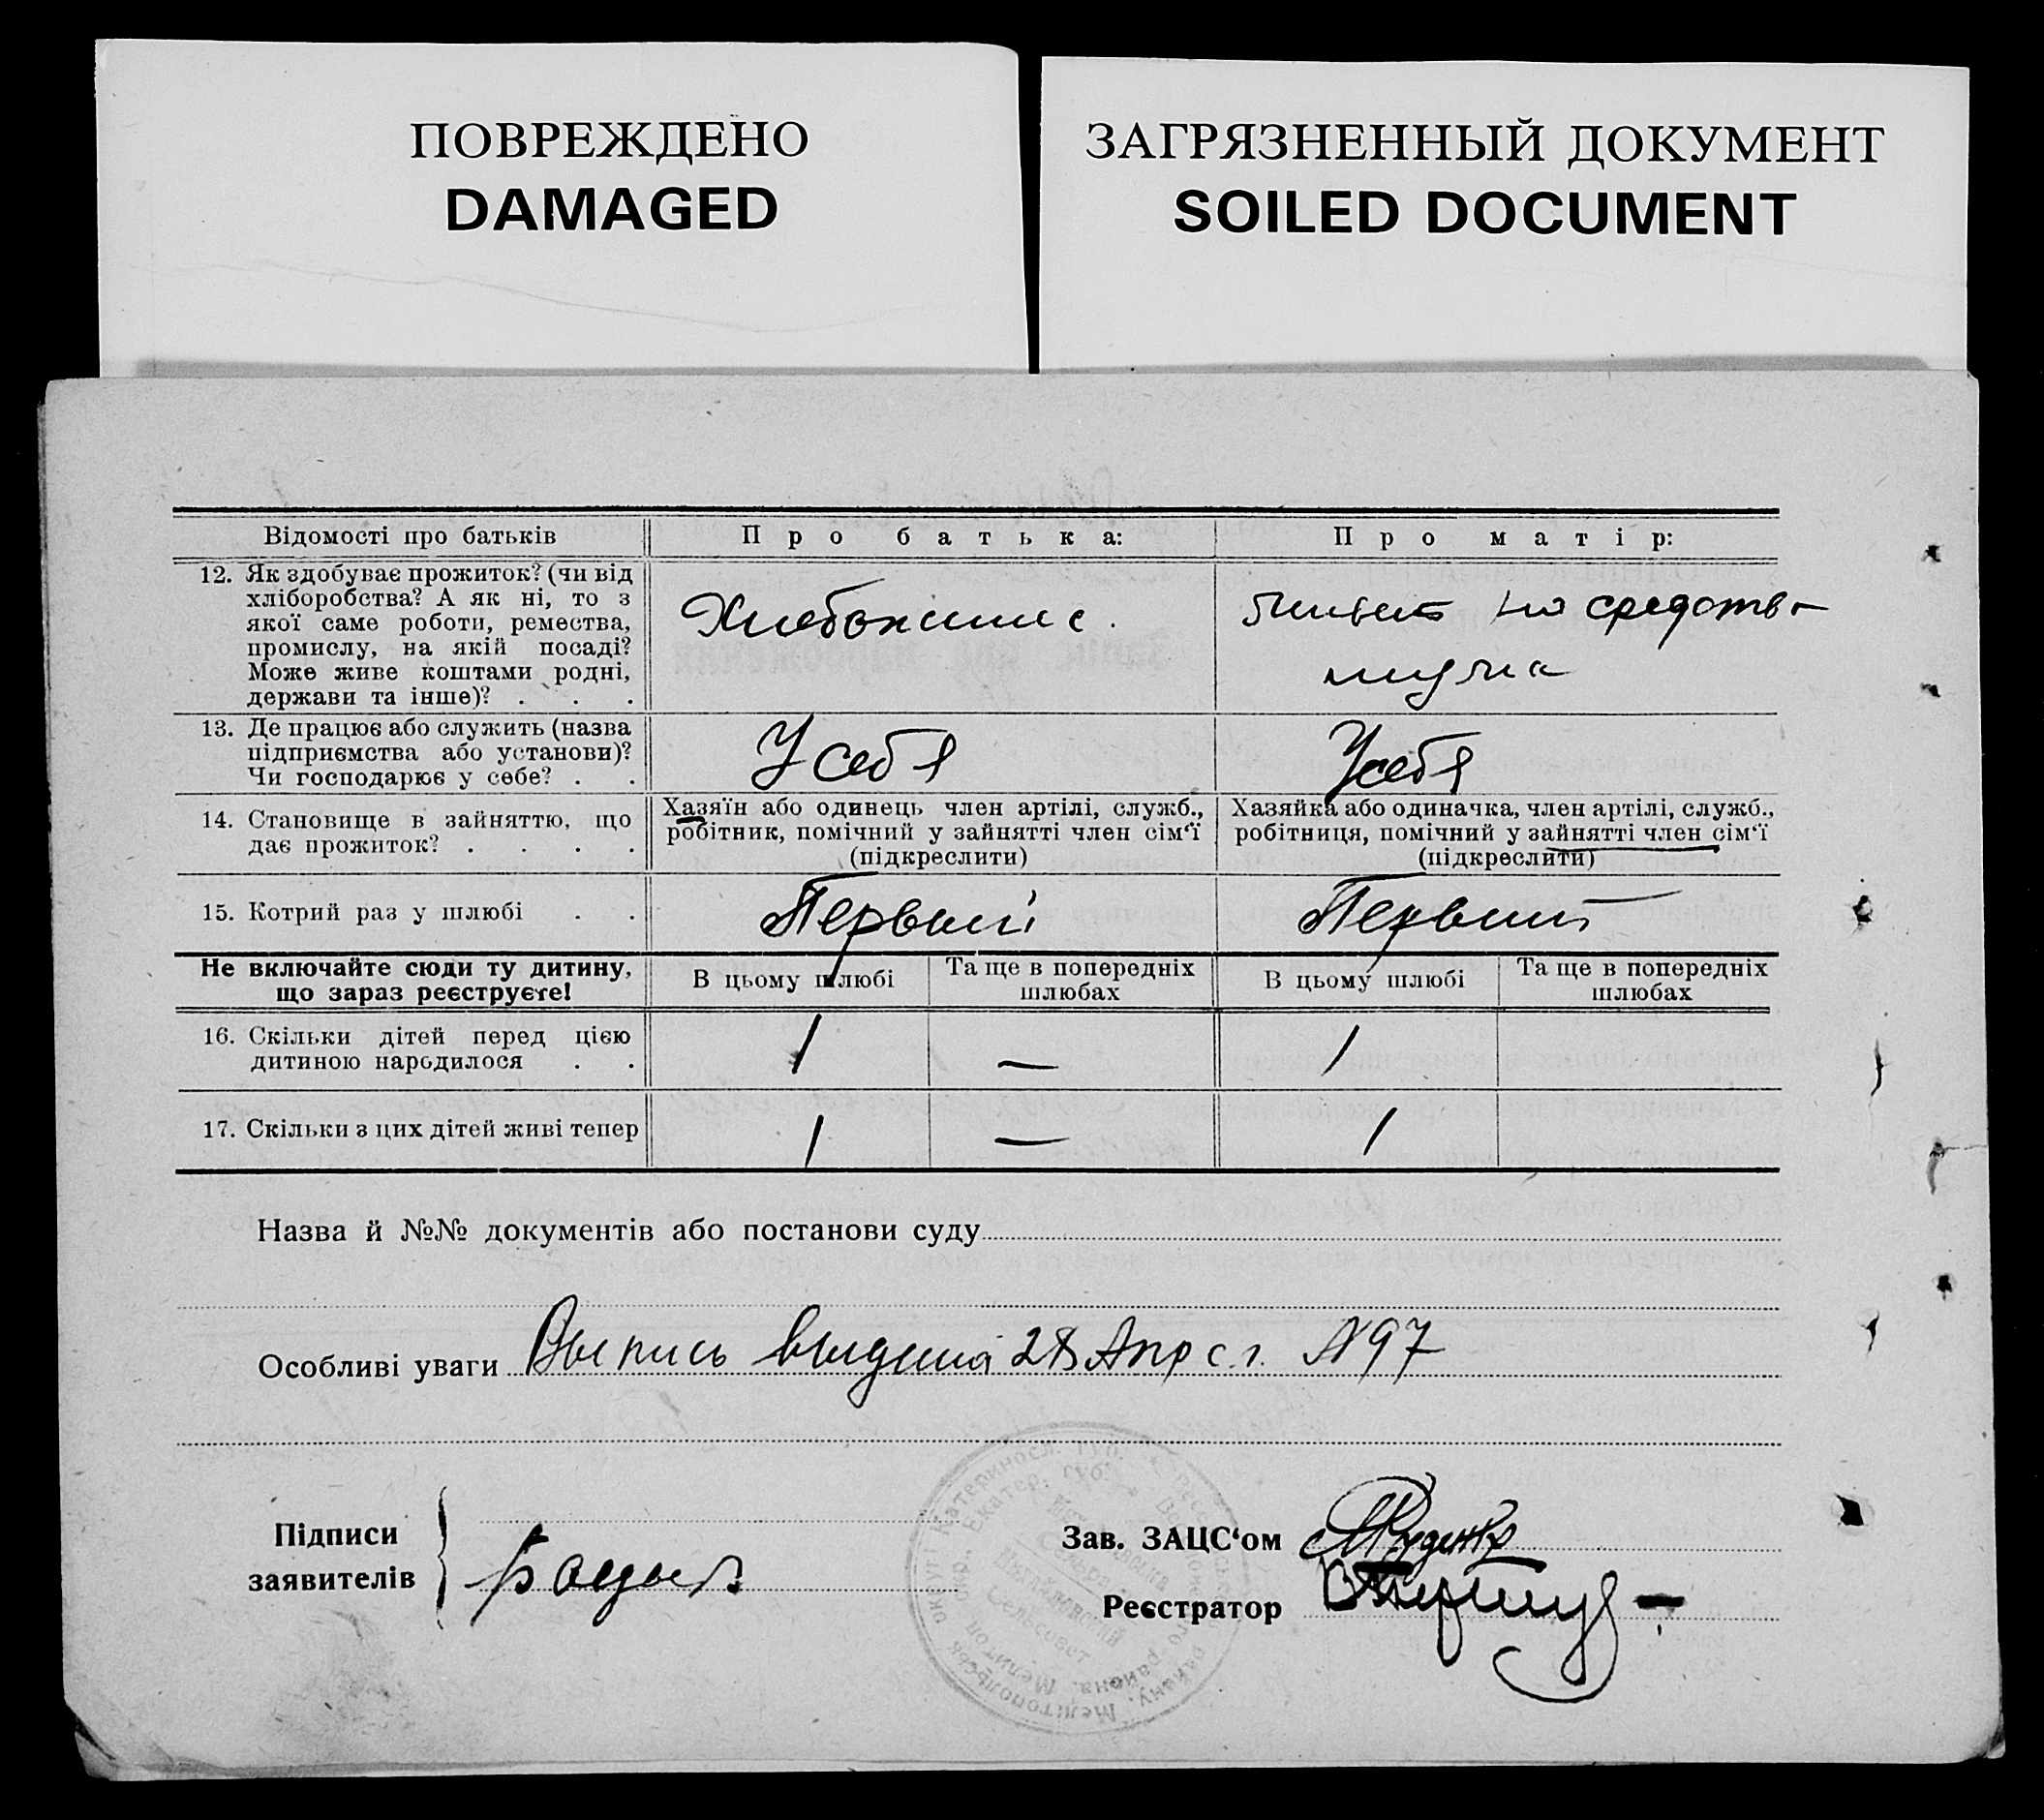 ПОВРЕЖДЕНО
DAMAGED
ЗАГРЯЗНЕННЫЙ ДОКУМЕНТ
SOILED DOCUMENT
Відомості про батьків
Про батька:
Про матір:
12. Як здобуває прожиток? (чи від
хліборобства? А як ні, то з
якої саме роботи, ремества,
промислу, на якій посаді?
Може живе коштами родні,
держави та інше)? . . .
на средства
мужа
13. Де працює або служить (назва
підприємства або установи)?
Чи господарює у себе? . .
У себя
У себя
14. Становище в зайняттю, що
дає прожиток? . . . .
Хазяїн або одинець член артілі, служб.,
робітник, помічний у зайнятті член сім‘ї
(підкреслити)
Хазяйка або одиначка, член артілі, служб.,
робітниця, помічний у зайнятті член сім‘ї
(підкреслити)
15. Котрий раз у шлюбі . .
Первый
Первый
Не включайте сюди ту дитину,
що зараз реєструєте!
В цьому шлюбі
Та ще в попередніх
шлюбах
В цьому шлюбі
Та ще в попередніх
шлюбах
16. Скільки дітей перед цією
дитиною народилося . .
1
—
1
17. Скільки з цих дітей живі тепер
1
—
1
Назва й №№ документів або постанови суду
Особливі уваги Выпись выдана 28 Апр с.г. №97
Підписи
заявителів
Зав. ЗАЦС‘ом
Реєстратор